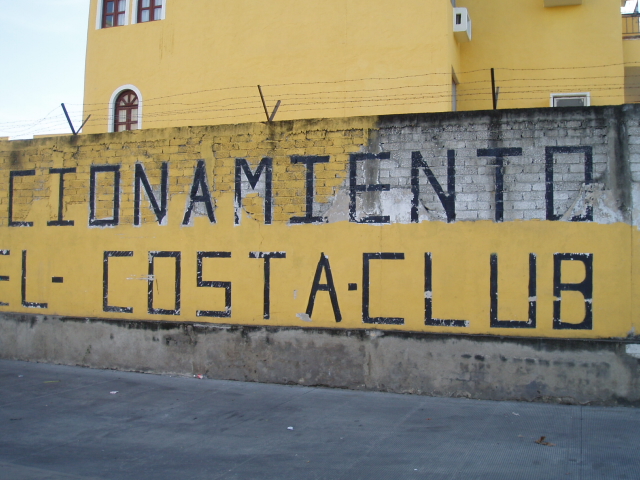 CIONAMIENTO
EL- COSTA-CLUB